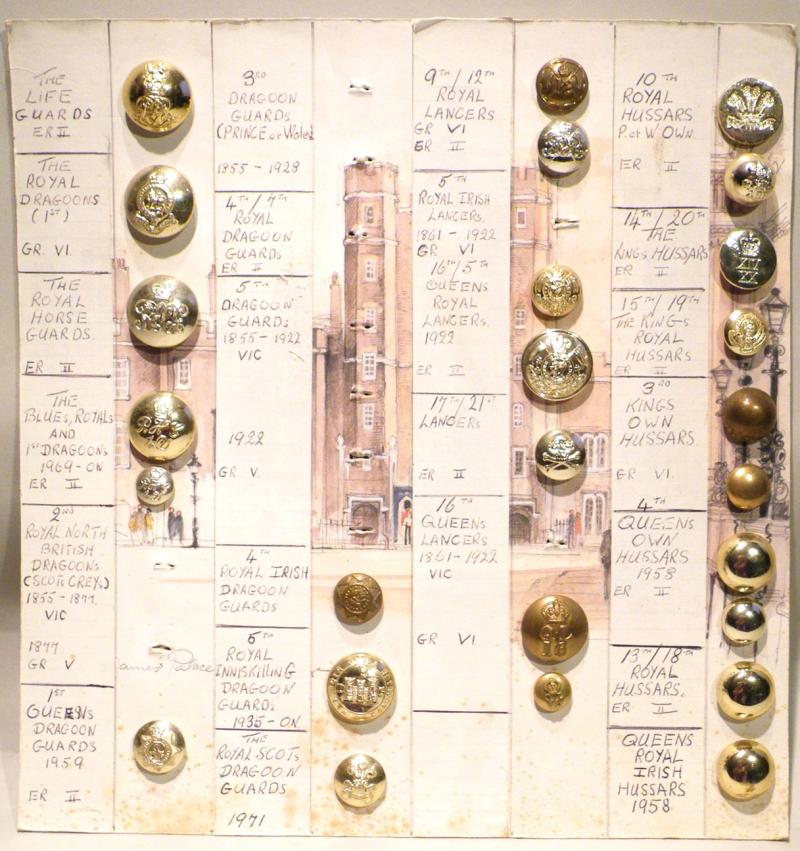 THE
LIFE
GUARDS
ER II
THE
ROYAL
DRAGOONS
(1ST)
GR. VI.
THE
ROYAL
HORSE
GUARDS.
ER II
THE
BLUES, ROYALS
AND
1ST DRAGOONS
1969-ON
ER II
2ND
ROYAL NORTH
BRITISH
DRAGOONS.
(SCOTS GREYS)
1855-1877.
VIC
1877
GR V
1ST
QUEENS
DRAGOON
GUARDS
1959
ER II
James Palace
3RD
DRAGOON
GUARDS
(PRINCE OF Wales)
1855-1928
4TH/7TH
ROYAL
DRAGOON
GUARDS
ER II
5TH
DRAGOON
GUARDS
1855-1922
VIC
1922
GR V.
4TH
ROYAL IRISH
DRAGOON
GUARDS
5TH
ROYAL
INNISKILLING
DRAGOON
GUARDS.
1935-ON
THE
ROYAL SCOTS
DRAGOON
GUARDS
1971
9TH/12TH
ROYAL
LANCERS
GR VI
ER II
5TH
ROYAL IRISH
LANCERS.
1861-1922
GR VI
16TH/5TH
QUEENS
ROYAL
LANCERS.
1922
ER II
17TH/21ST
LANCERS
ER II
16TH
QUEENS
LANCERS
1861-1922
VIC
GR VI
10TH
ROYAL
HUSSARS
P. of W. OWN.
ER II
14TH/20TH
THE
KINGS HUSSARS
ER II
15TH/19TH
THE KINGS
ROYAL
HUSSARS
ER II
3RD
KINGS
OWN
HUSSARS
GR VI.
4TH
QUEENS
OWN
HUSSARS
1958
ER II
13TH/18TH
ROYAL
HUSSARS.
ER II
QUEENS
ROYAL
IRISH
HUSSARS
1958
XIV
XX